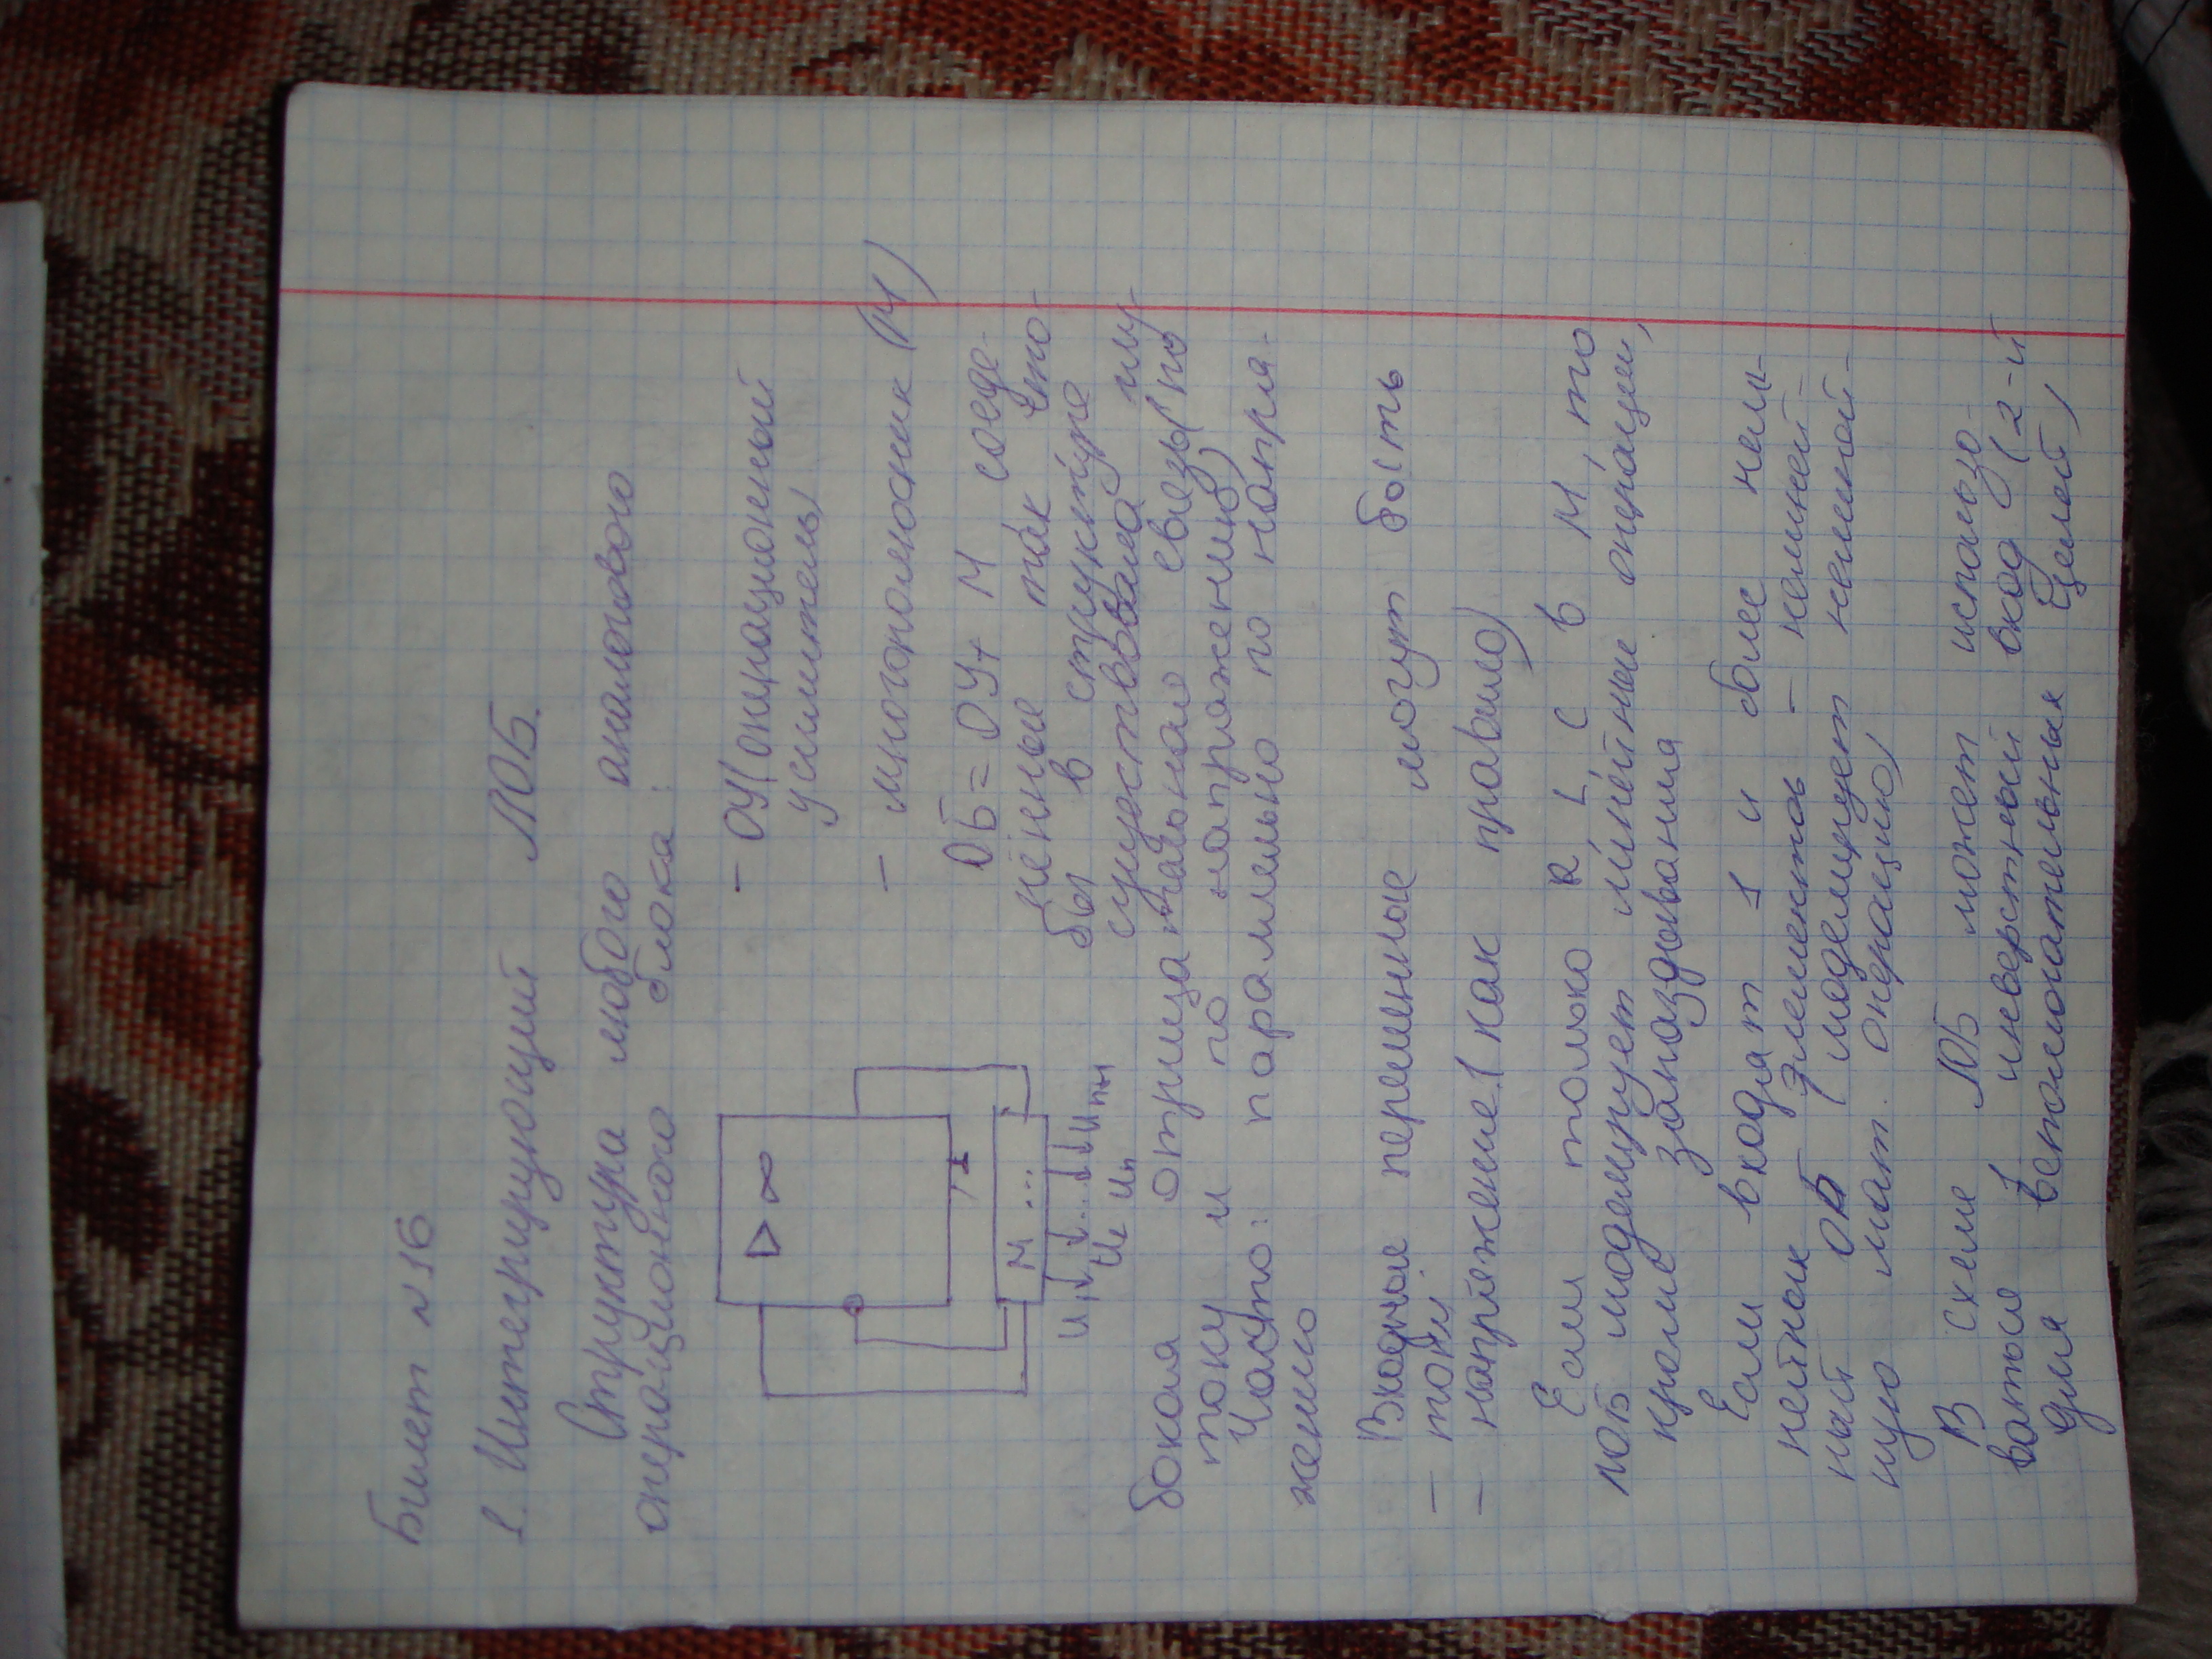 Билет №16
1. Интегрирующий ЛОБ.
Структура любого аналогового
операционного блока:
- ОУ (операционный
усилитель)
- многополюсник (М)
ОБ = ОУ + М соеде-
нённые так что-
бы в структуре
существовала глу-
▷ ∞
М ...
U₁ U₂ ... Uп Uп+1
бокая отрицательная связь (по
току и по напряжению)
Часто: параллельно по напря-
жению
Входные переменные могут быть
- токи
- напряжение (как правило)
Если только R, L, C в М, то
ЛОБ моделирует линейные операции,
кроме запаздывания
Если входят 1 и более нели-
нейных элементов - нелиней-
ный ОБ (моделирует нелиней-
ную мат. операцию)
В схеме ЛОБ может использо-
ваться инверсный вход (2-й
для вспомогательных целей)